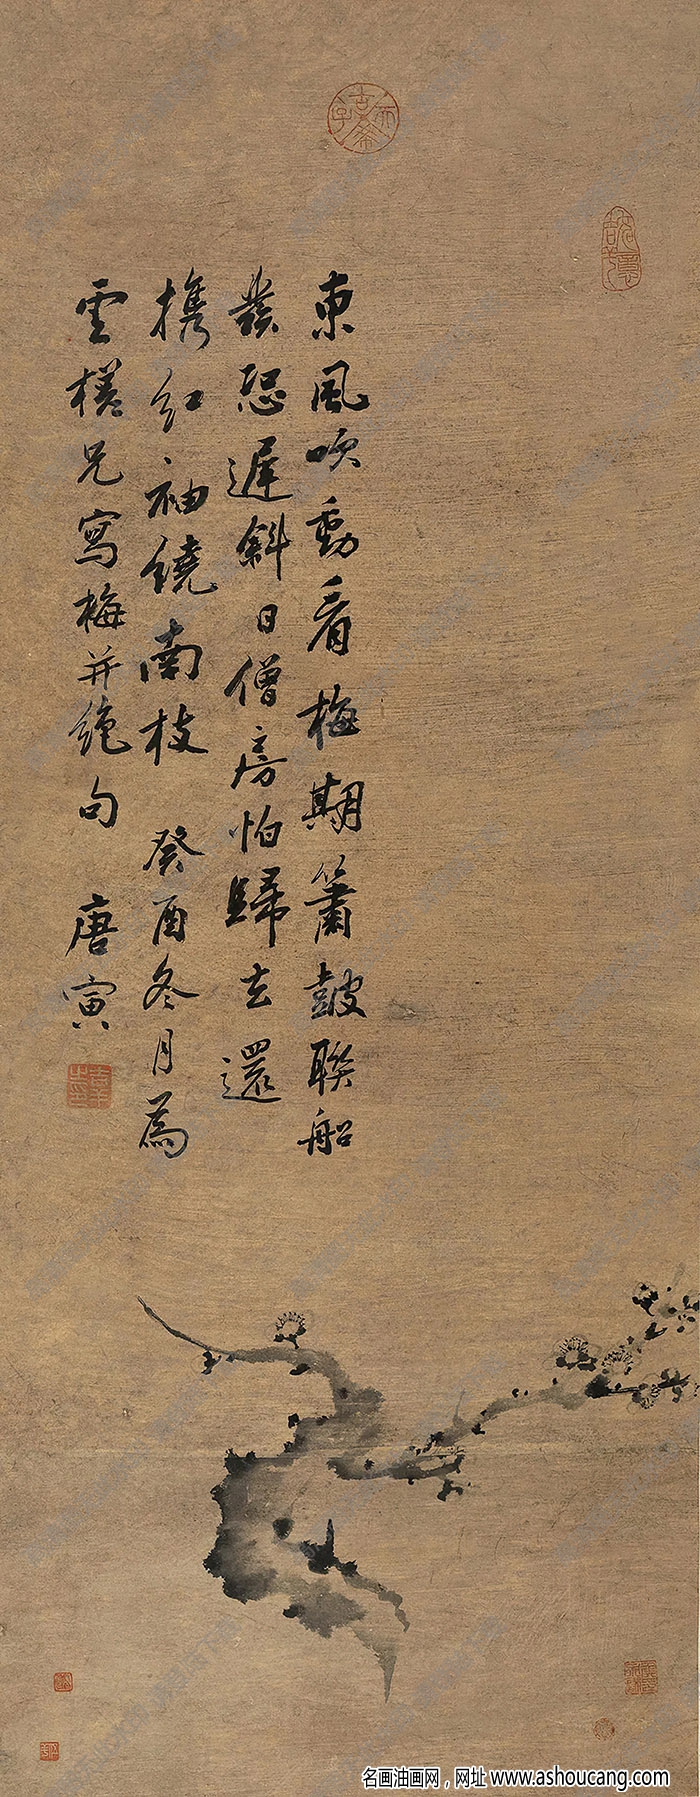 東風吹動看梅期簫鼓聯船
發恐遲斜日僧房怕歸去還
携紅袖繞南枝 癸酉冬月為
雲槎兄寫梅并絶句 唐寅
名画油画网，网址 www.ashoucang.com